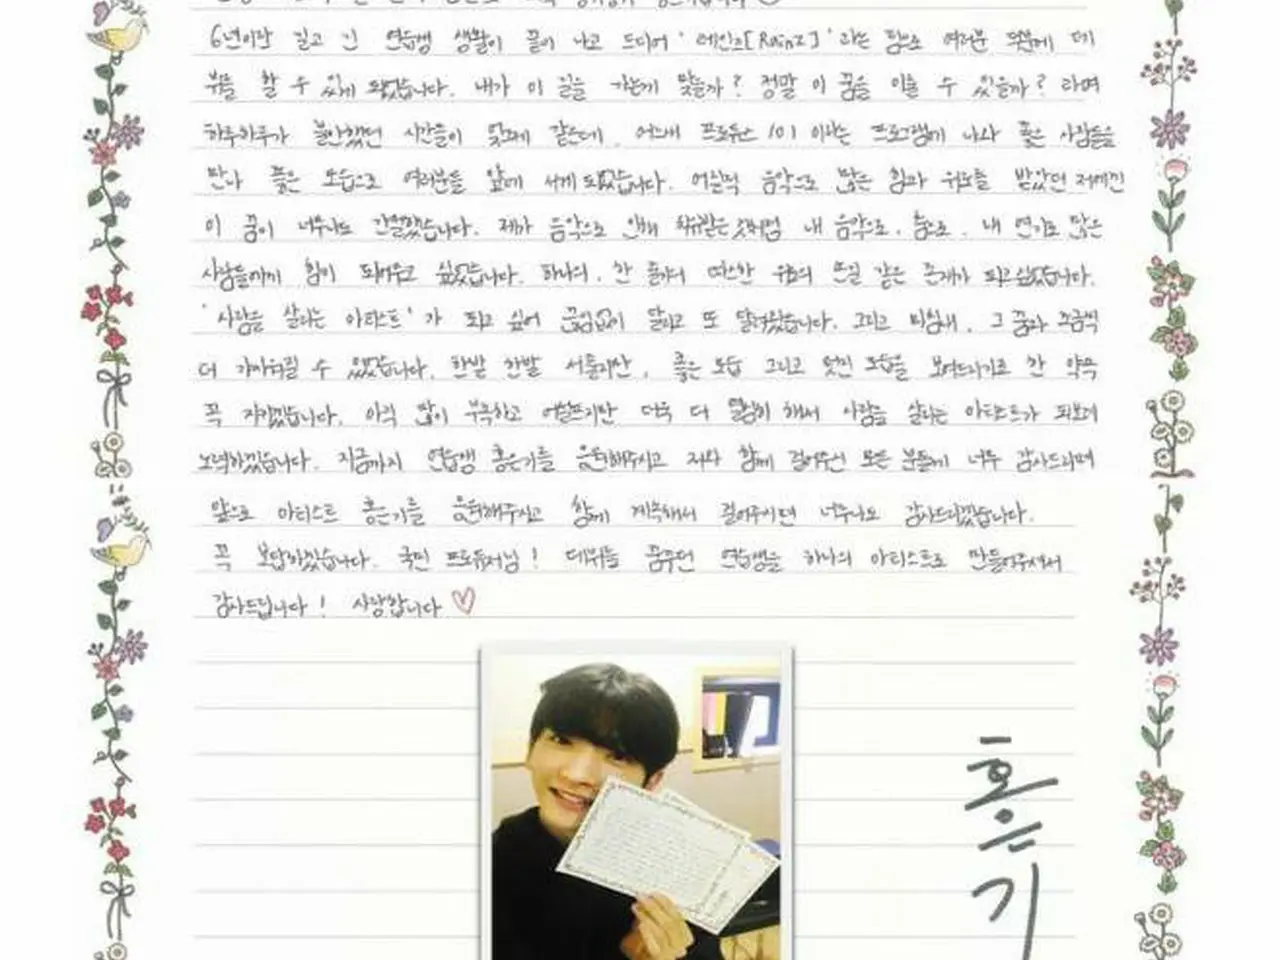 6년이란 길고 긴 연습생 생활이 끝이 나고 드디어 '레인즈[Rainz]' 라는 팀으로 여러분 곁에 데
뷔를 할 수 있게 되었습니다. 내가 이 길을 가는게 맞을까? 정말 이 꿈을 이룰 수 있을까? 라며
하루하루가 불안했던 시간들이 엊그제 같은데, 어느새 프로듀스 101 이라는 프로그램에 나와 좋은 사람들을
만나 좋은 모습으로 여러분들 앞에 서게 되었습니다. 어릴적 음악으로 많은 힘과 위로를 받았던 저에겐
이 꿈이 너무나도 간절했습니다. 제가 음악으로 인해 치유받은 것처럼 내 음악으로, 춤으로, 내 연기로 많은
사람들에게 힘이 되어주고 싶었습니다. 하나의, 한 줄기의 따스한 위로의 손길 같은 존재가 되고싶었습니다.
'사람을 살리는 아티스트' 가 되고 싶어 끊임없이 달리고 또 달려왔습니다. 그리고 마침내, 그 꿈과 조금씩
더 가까워질 수 있었습니다. 한발 한발 서툴지만, 좋은 모습 그리고 멋진 모습을 보여드리기로 한 약속
꼭 지키겠습니다. 아직 많이 부족하고 어설프지만 더욱 더 열심히 해서 사람을 살리는 아티스트가 되도록
노력하겠습니다. 지금까지 연습생 홍은기를 응원해주시고 저와 함께 걸어주신 모든 분들께 너무 감사드리며
앞으로 아티스트 홍은기를 응원해주시고 함께 계속해서 걸어주시면 너무나도 감사드리겠습니다.
꼭 보답하겠습니다. 국민 프로듀서님! 데뷔를 꿈꾸던 연습생을 하나의 아티스트로 만들어주셔서
감사드립니다! 사랑합니다 ♡
홍은기